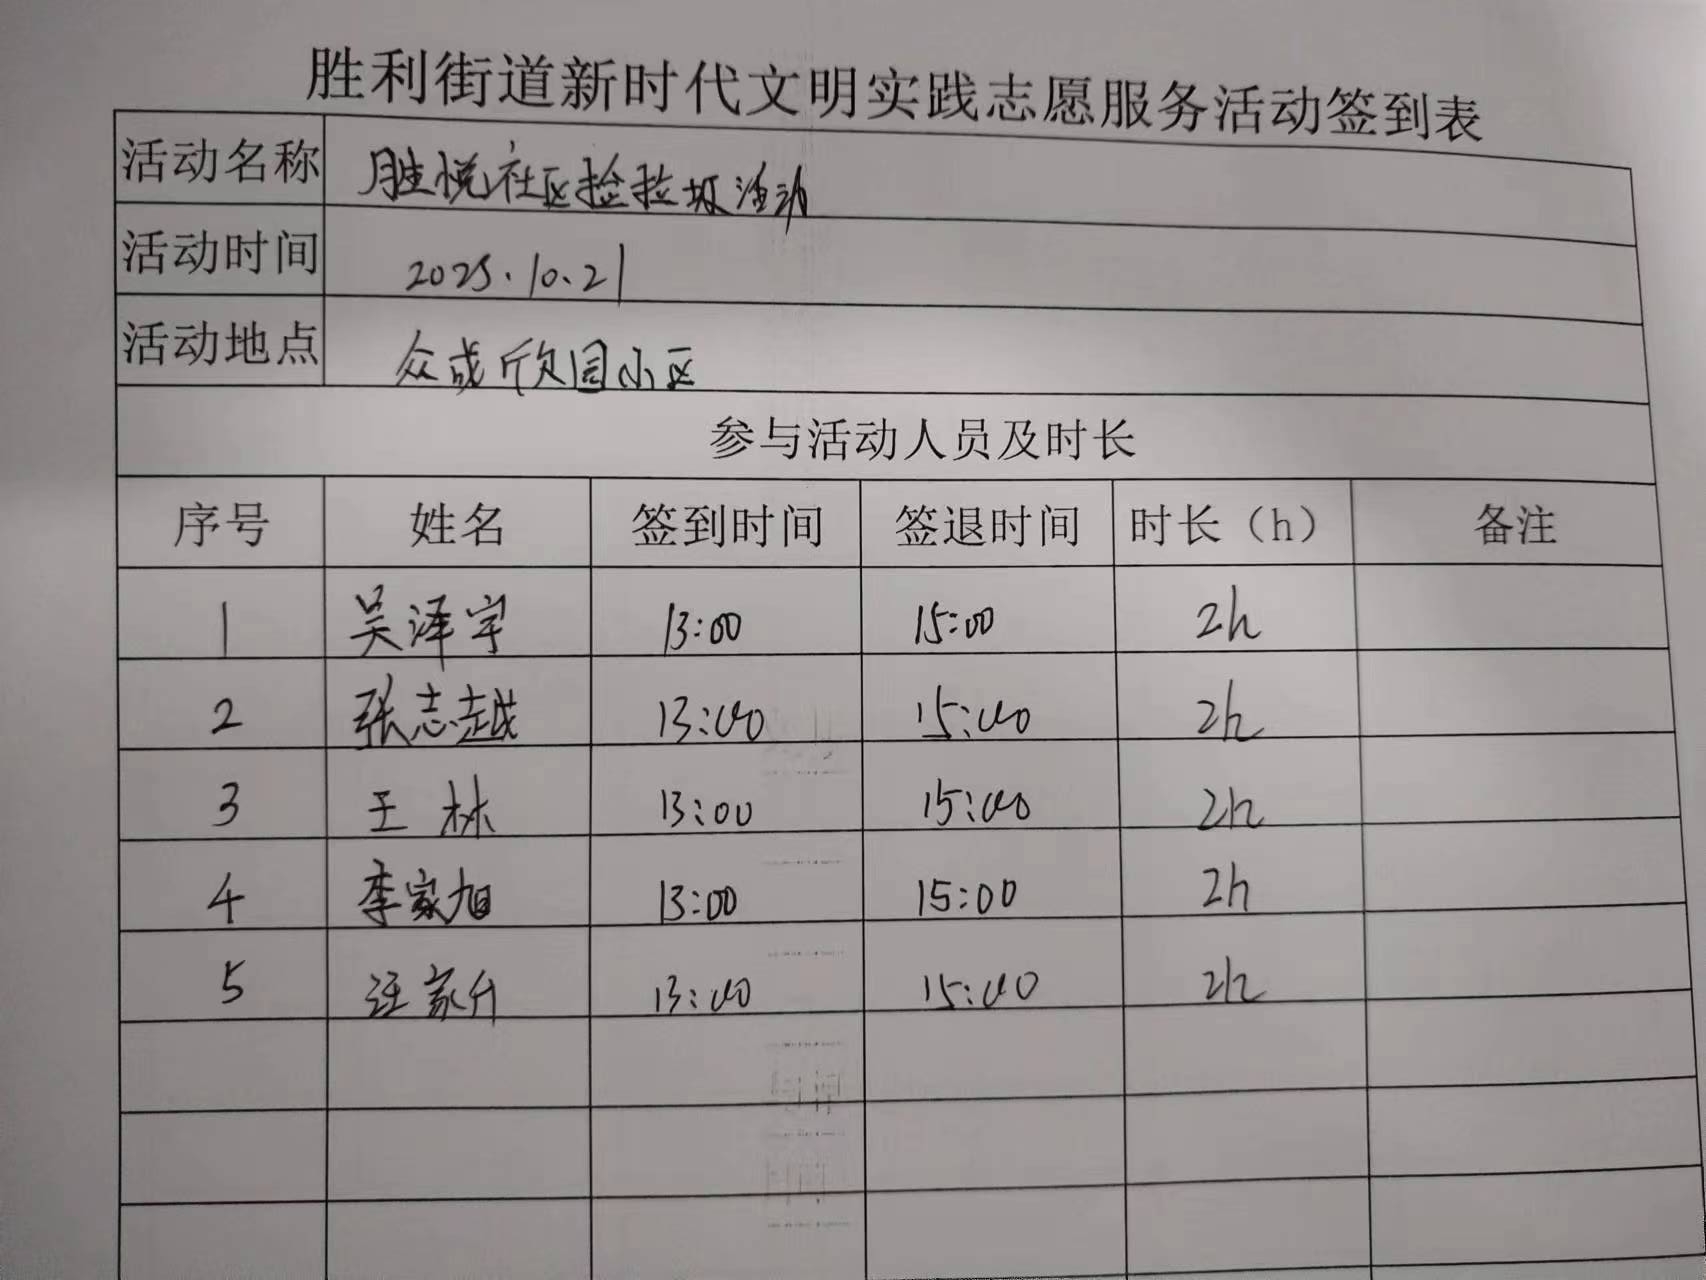 胜利街道新时代文明实践志愿服务活动签到表
活动名称 胜悦社区捡垃圾活动
活动时间 2025.10.21
活动地点 众成欣园小区
参与活动人员及时长
序号 姓名 签到时间 签退时间 时长（h） 备注
1 吴泽宇 13:00 15:00 2h
2 张志越 13:00 15:00 2h
3 王林 13:00 15:00 2h
4 李家旭 13:00 15:00 2h
5 汪家升 13:00 15:00 2h